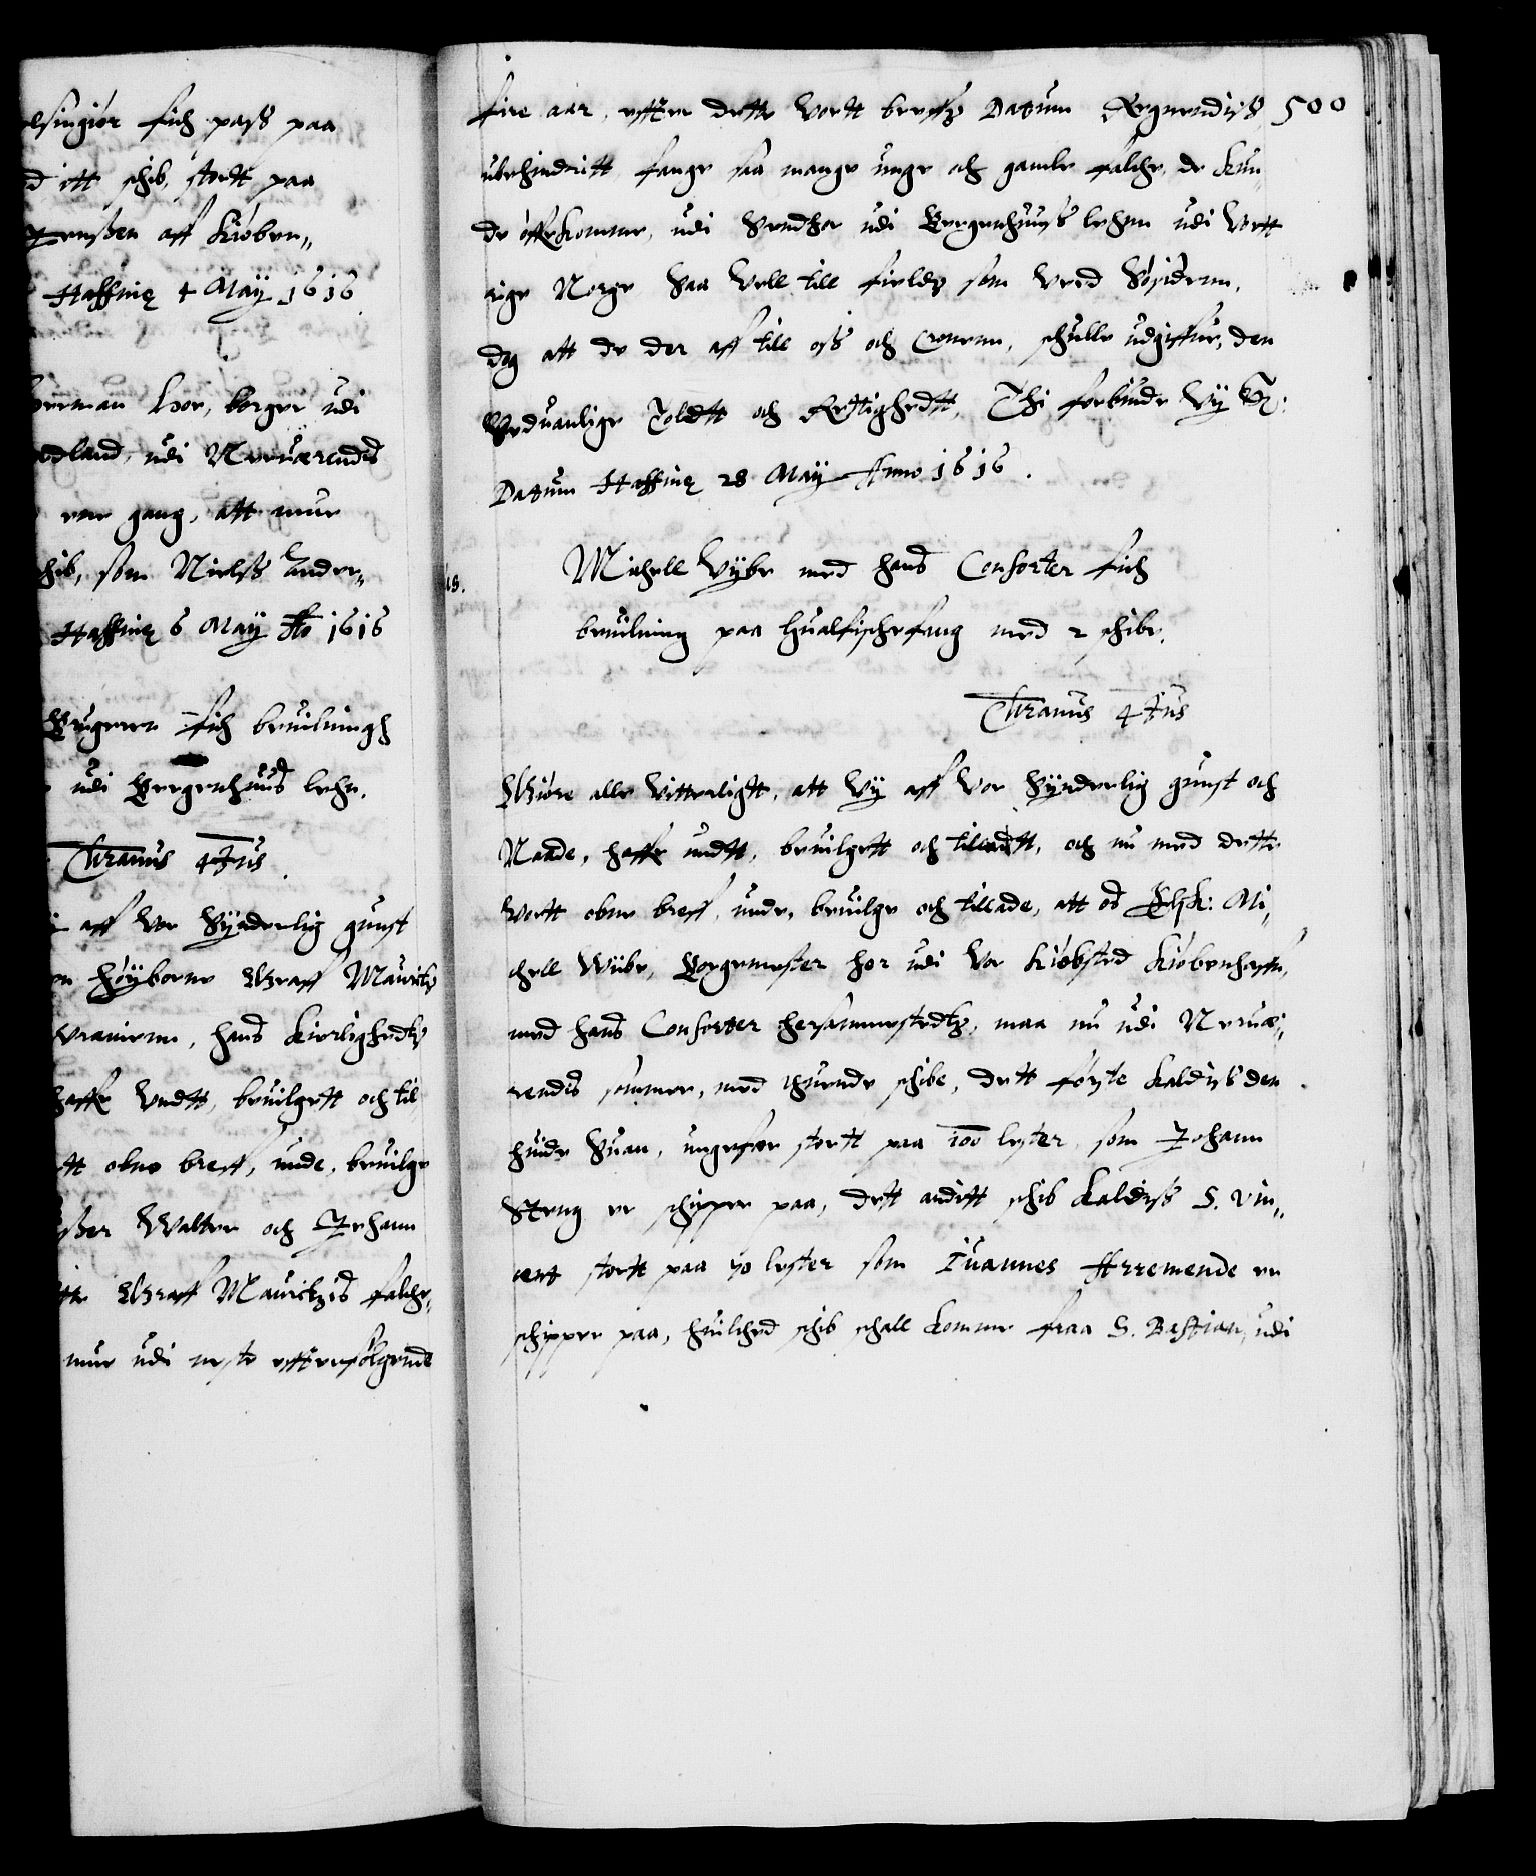 elsingiør fich paß paa
d itt schib, stortt paa
Jenßen aff Kiøben„
Haffniæ 4 May 1616.
Herman Hoe, borger udi
adland, udi Neruærendis
ene gang, att mue
hib, som Nielß Ander„
Haffniæ 6 May Ao 1616
Brugeren fich beuilningh
udi Bergenhuus lehn.
Chrianus 4tus.
aff Vor Synderlig gunst
Høyborne Graff Mauritz
Vranienn, hans Kierlighedtz
haffe Undtt, beuilgett och til
tt obne breff, unde, beuilge
ßer Walter och Johann
Graff Mauritzis falche„
mue udi neste effterfølgende
500
fire aar, effter dette Vortt breffz Datum Regnendiß
ubehindritt fange saa mange unge och gamle falche, de Kun„
de offerKomme, udi Sundhor udi Bergenhuuß lehnn udi Vortt
rige Norge Saa Vell till fieldz som Ved Søsidenn,
dog att de der aff till oß och Cronenn, schulle udgiffue, den
Seduanlige Toldtt och Rettighedtt, Thi forbiude Vy Etc:
Datum Haffniæ 28 May Anno 1616.
Michell Vybe med hans Consorter fich
beuilning paa Hualfischefang med 2 schibe.
Chrianus 4tus
Giøre alle Vitterligtt, att Vy aff Vor Synderlig gunst och
Naade, haffe undtt, beuilgett och tilladtt, och nu med dette
Vortt obne breff, unde, beuilge och tillade, att os Elsk: Mi„
chell Wiibe, Borgemester her udi Vor Kiøbsted Kiøbenhaffn,
med hans Consorter hersammestedtz, maa nu udi Neruæ„
rendis sommer, med thuende schibe, dett første Kaldiß den
huide Suan, ungefær stortt paa 100 lester, som Johann
Steng er schipper paa, dett anditt schib Kaldiß S. Vin„
cent stortt paa 70 lester som Iuannes Arremende er
schipper paa, huilched schib schall Komme fraa S. Bastian, udi